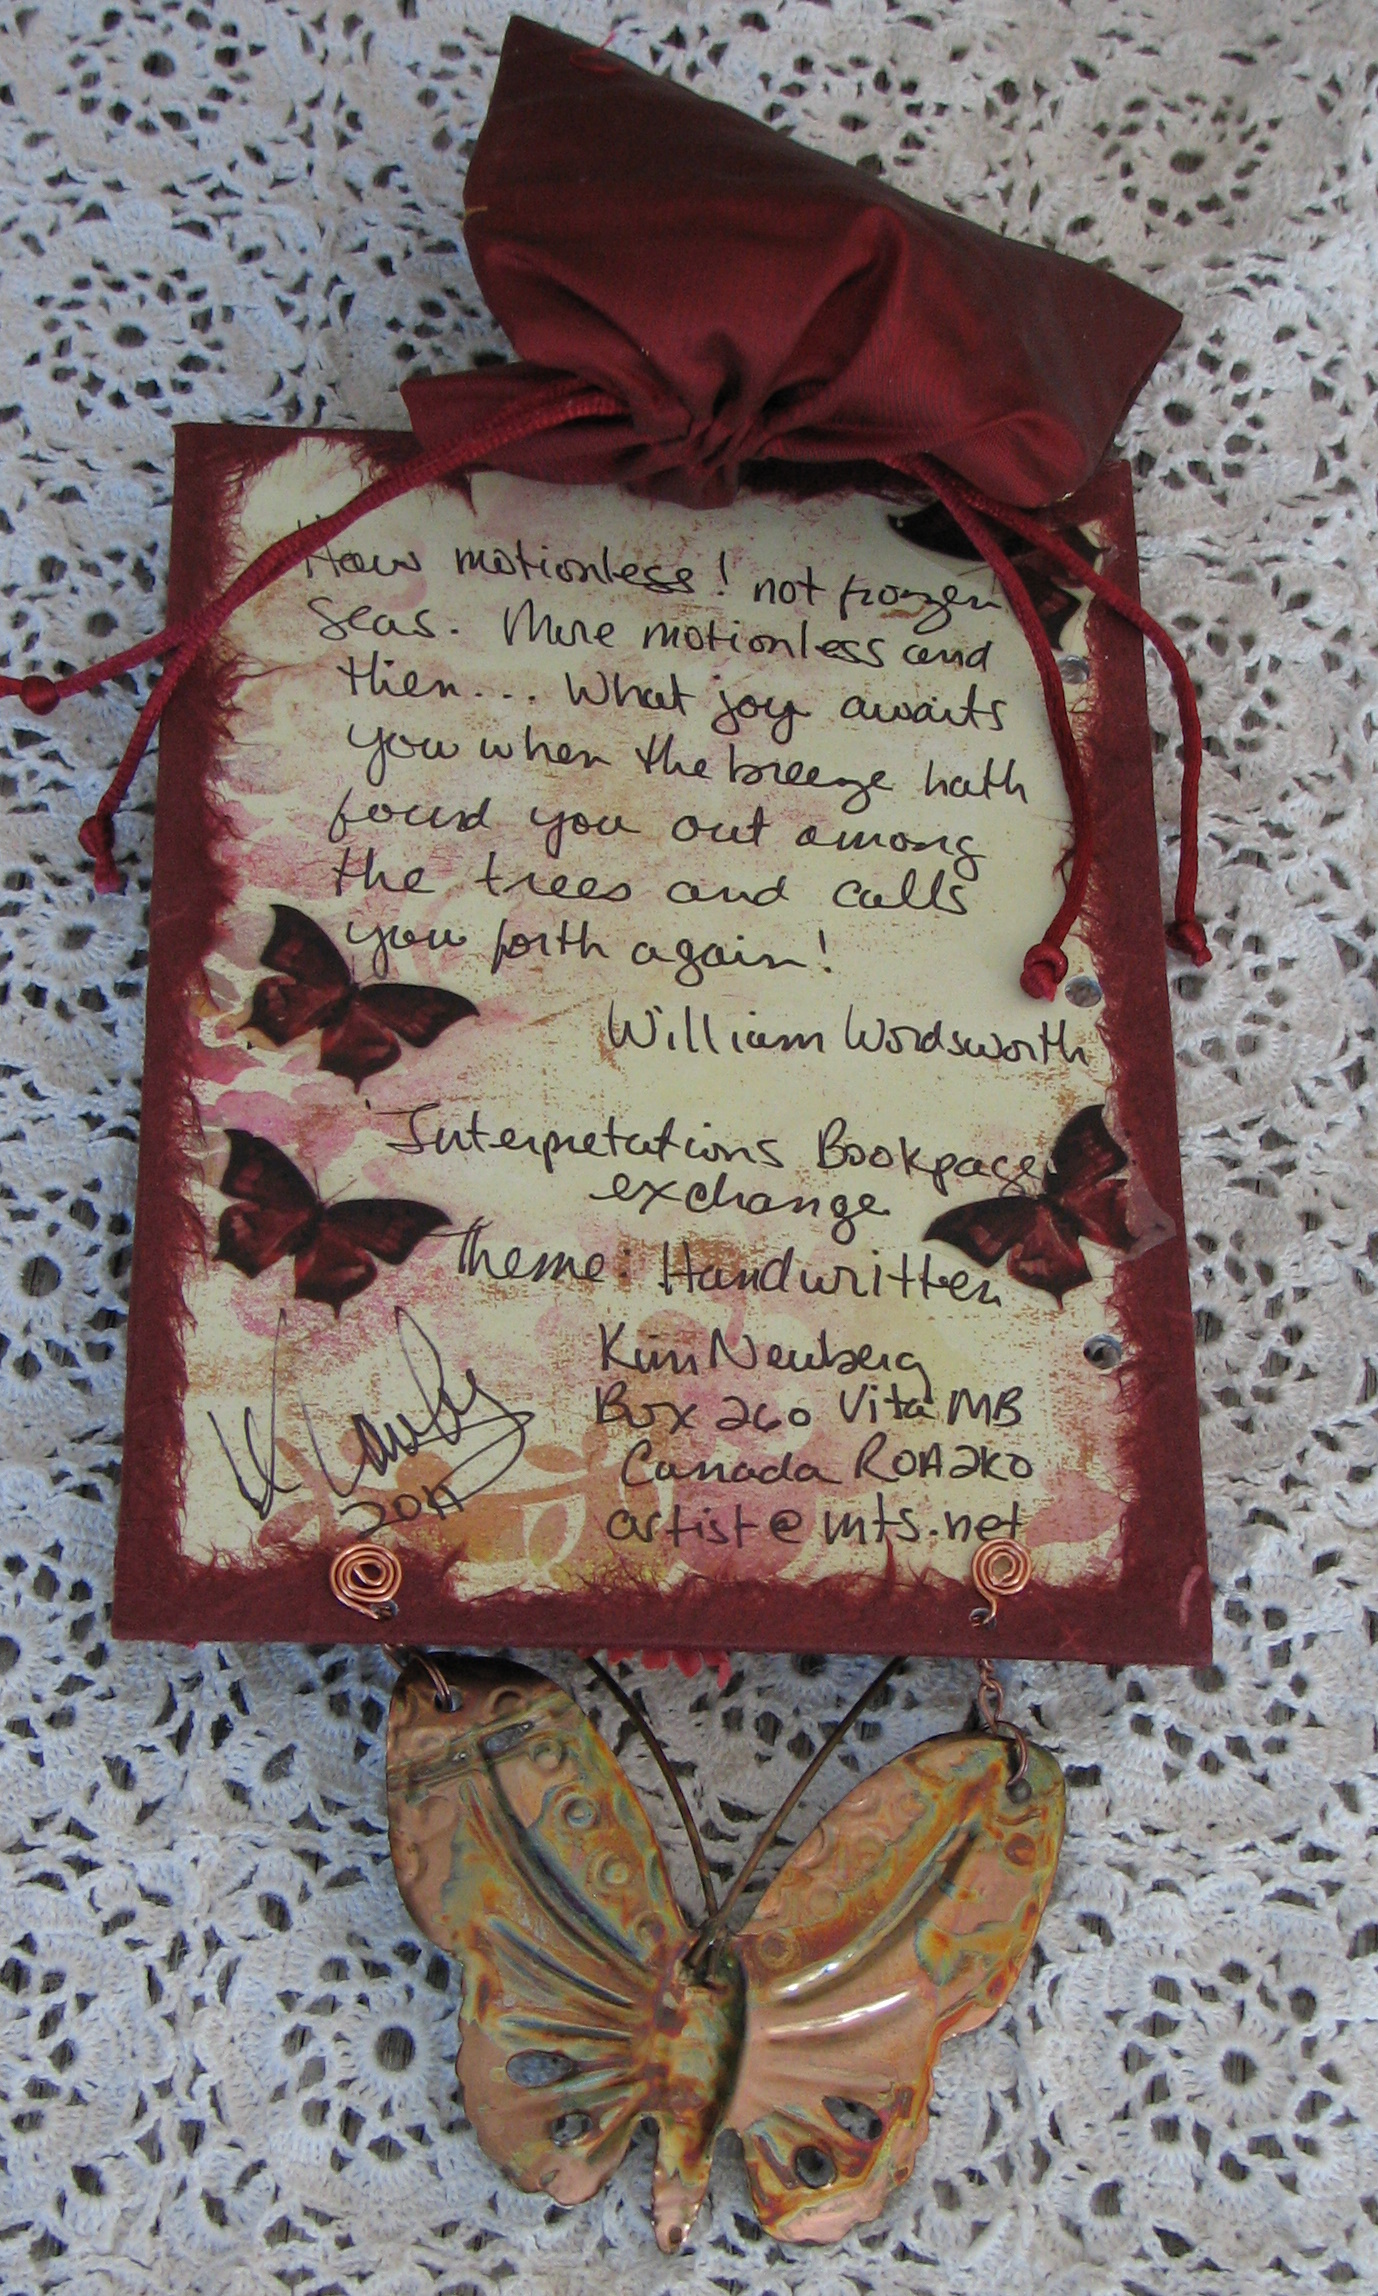 How motionless! not frozen
seas. More motionless and
then... What joy awaits
you when the breeze hath
found you out among
the trees and calls
you forth again!
William Wordsworth
Interpretations Bookpage
exchange
Theme: Handwritten
Kim Neuberg
Box 260 Vita MB
Canada R0A2K0
artist@mts.net
2011